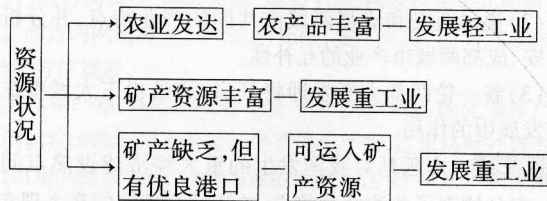 资源状况
农业发达
农产品丰富
发展轻工业
矿产资源丰富
发展重工业
矿产缺乏,但
有优良港口
可运入矿
产资源
发展重工业